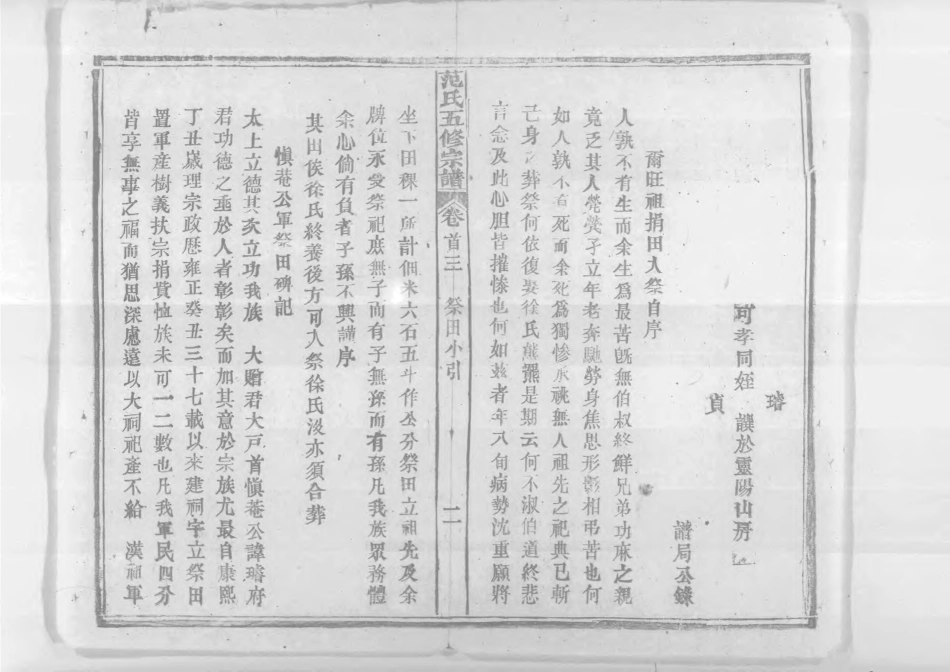 璿
可孝同姪 譔於靈陽山房
貞
譜局公錄
爾旺祖捐田入祭自序
人孰不有生而余生爲最苦旣無伯叔終鮮兄弟功麻之親
竟乏其人煢煢孑立年老奔馳勞身焦思形影相弔苦也何
如人孰不有死而余死爲獨慘承祧無人祖先之祀典已斬
己身之葬祭何依復娶徐氏熊羆是期云何不淑伯道終悲
言念及此心胆皆摧慘也何如茲者年八旬病勢沈重願將
范氏五修宗譜 卷首三 祭田小引 二
坐下田稞一所計佃米六石五斗作公分祭田立祖先及余
牌位永受祭祀庶無子而有子無孫而有孫凡我族眾務體
余心倘有負者子孫不興謹序
其田俟徐氏終養後方可入祭徐氏沒亦須合葬
愼菴公軍祭田碑記
太上立德其次立功我族 大贈君大戸首愼菴公諱璿府
君功德之亟於人者彰彰矣而加其意於宗族尤最自康熙
丁丑歲理宗政歷雍正癸丑三十七載以來建祠宇立祭田
置軍産樹義扶宗捐貲恤族未可一二數也凡我軍民四分
皆享無事之福而猶思深慮遠以大祠祀產不給 漢祖軍